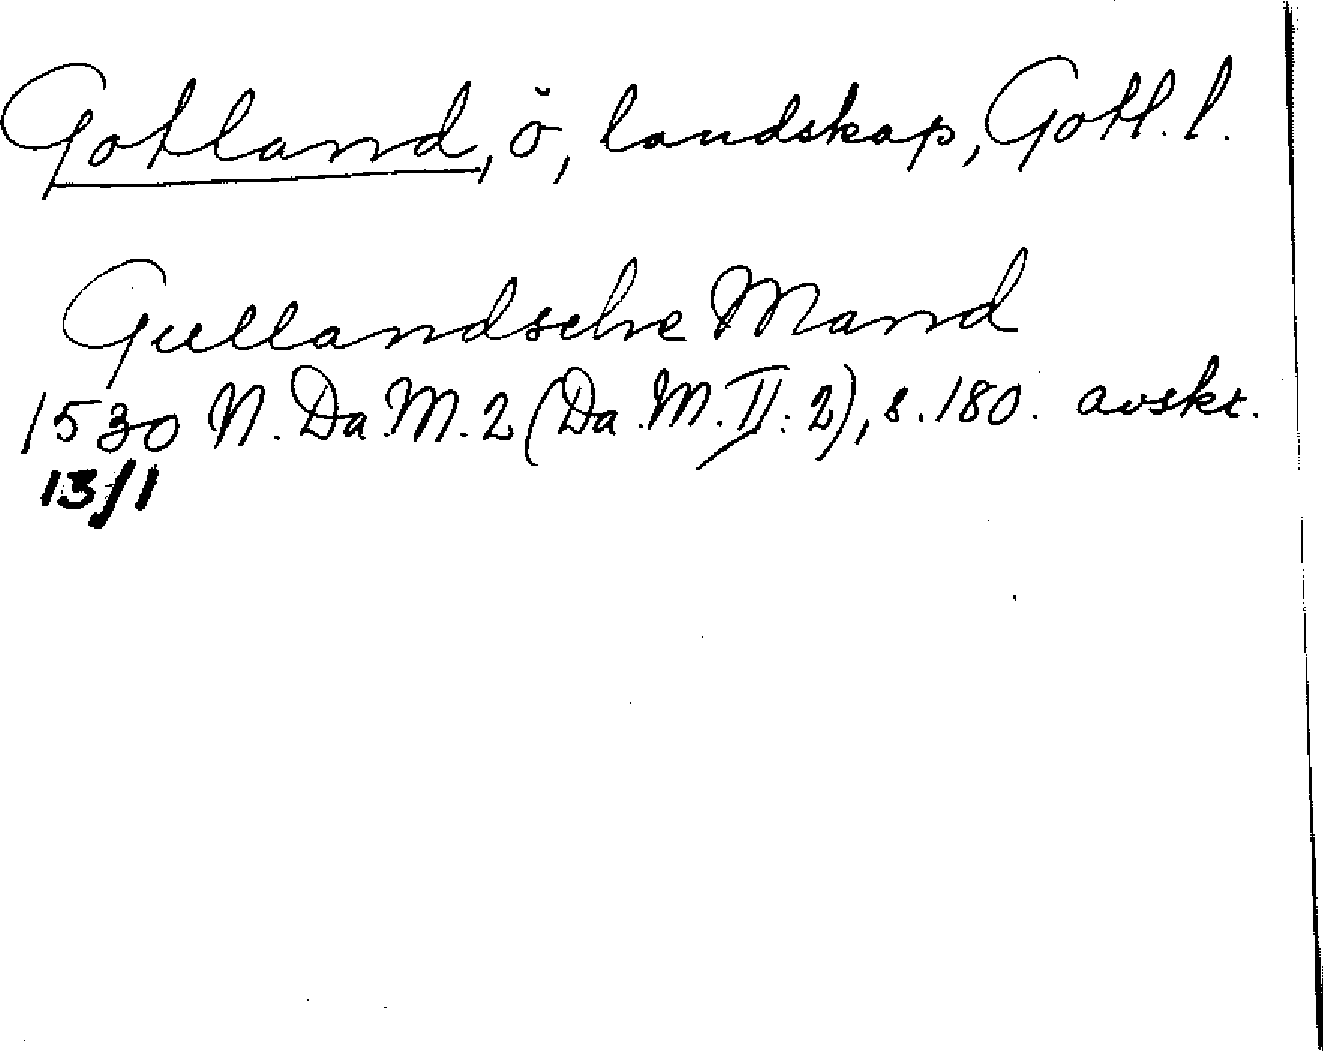 Gotland, ö, landskap, Gotl. l.
Gullandsche Mand
1530 N. Da. M. 2 (Da. M. II: 2), s. 180. avskr.
13/1